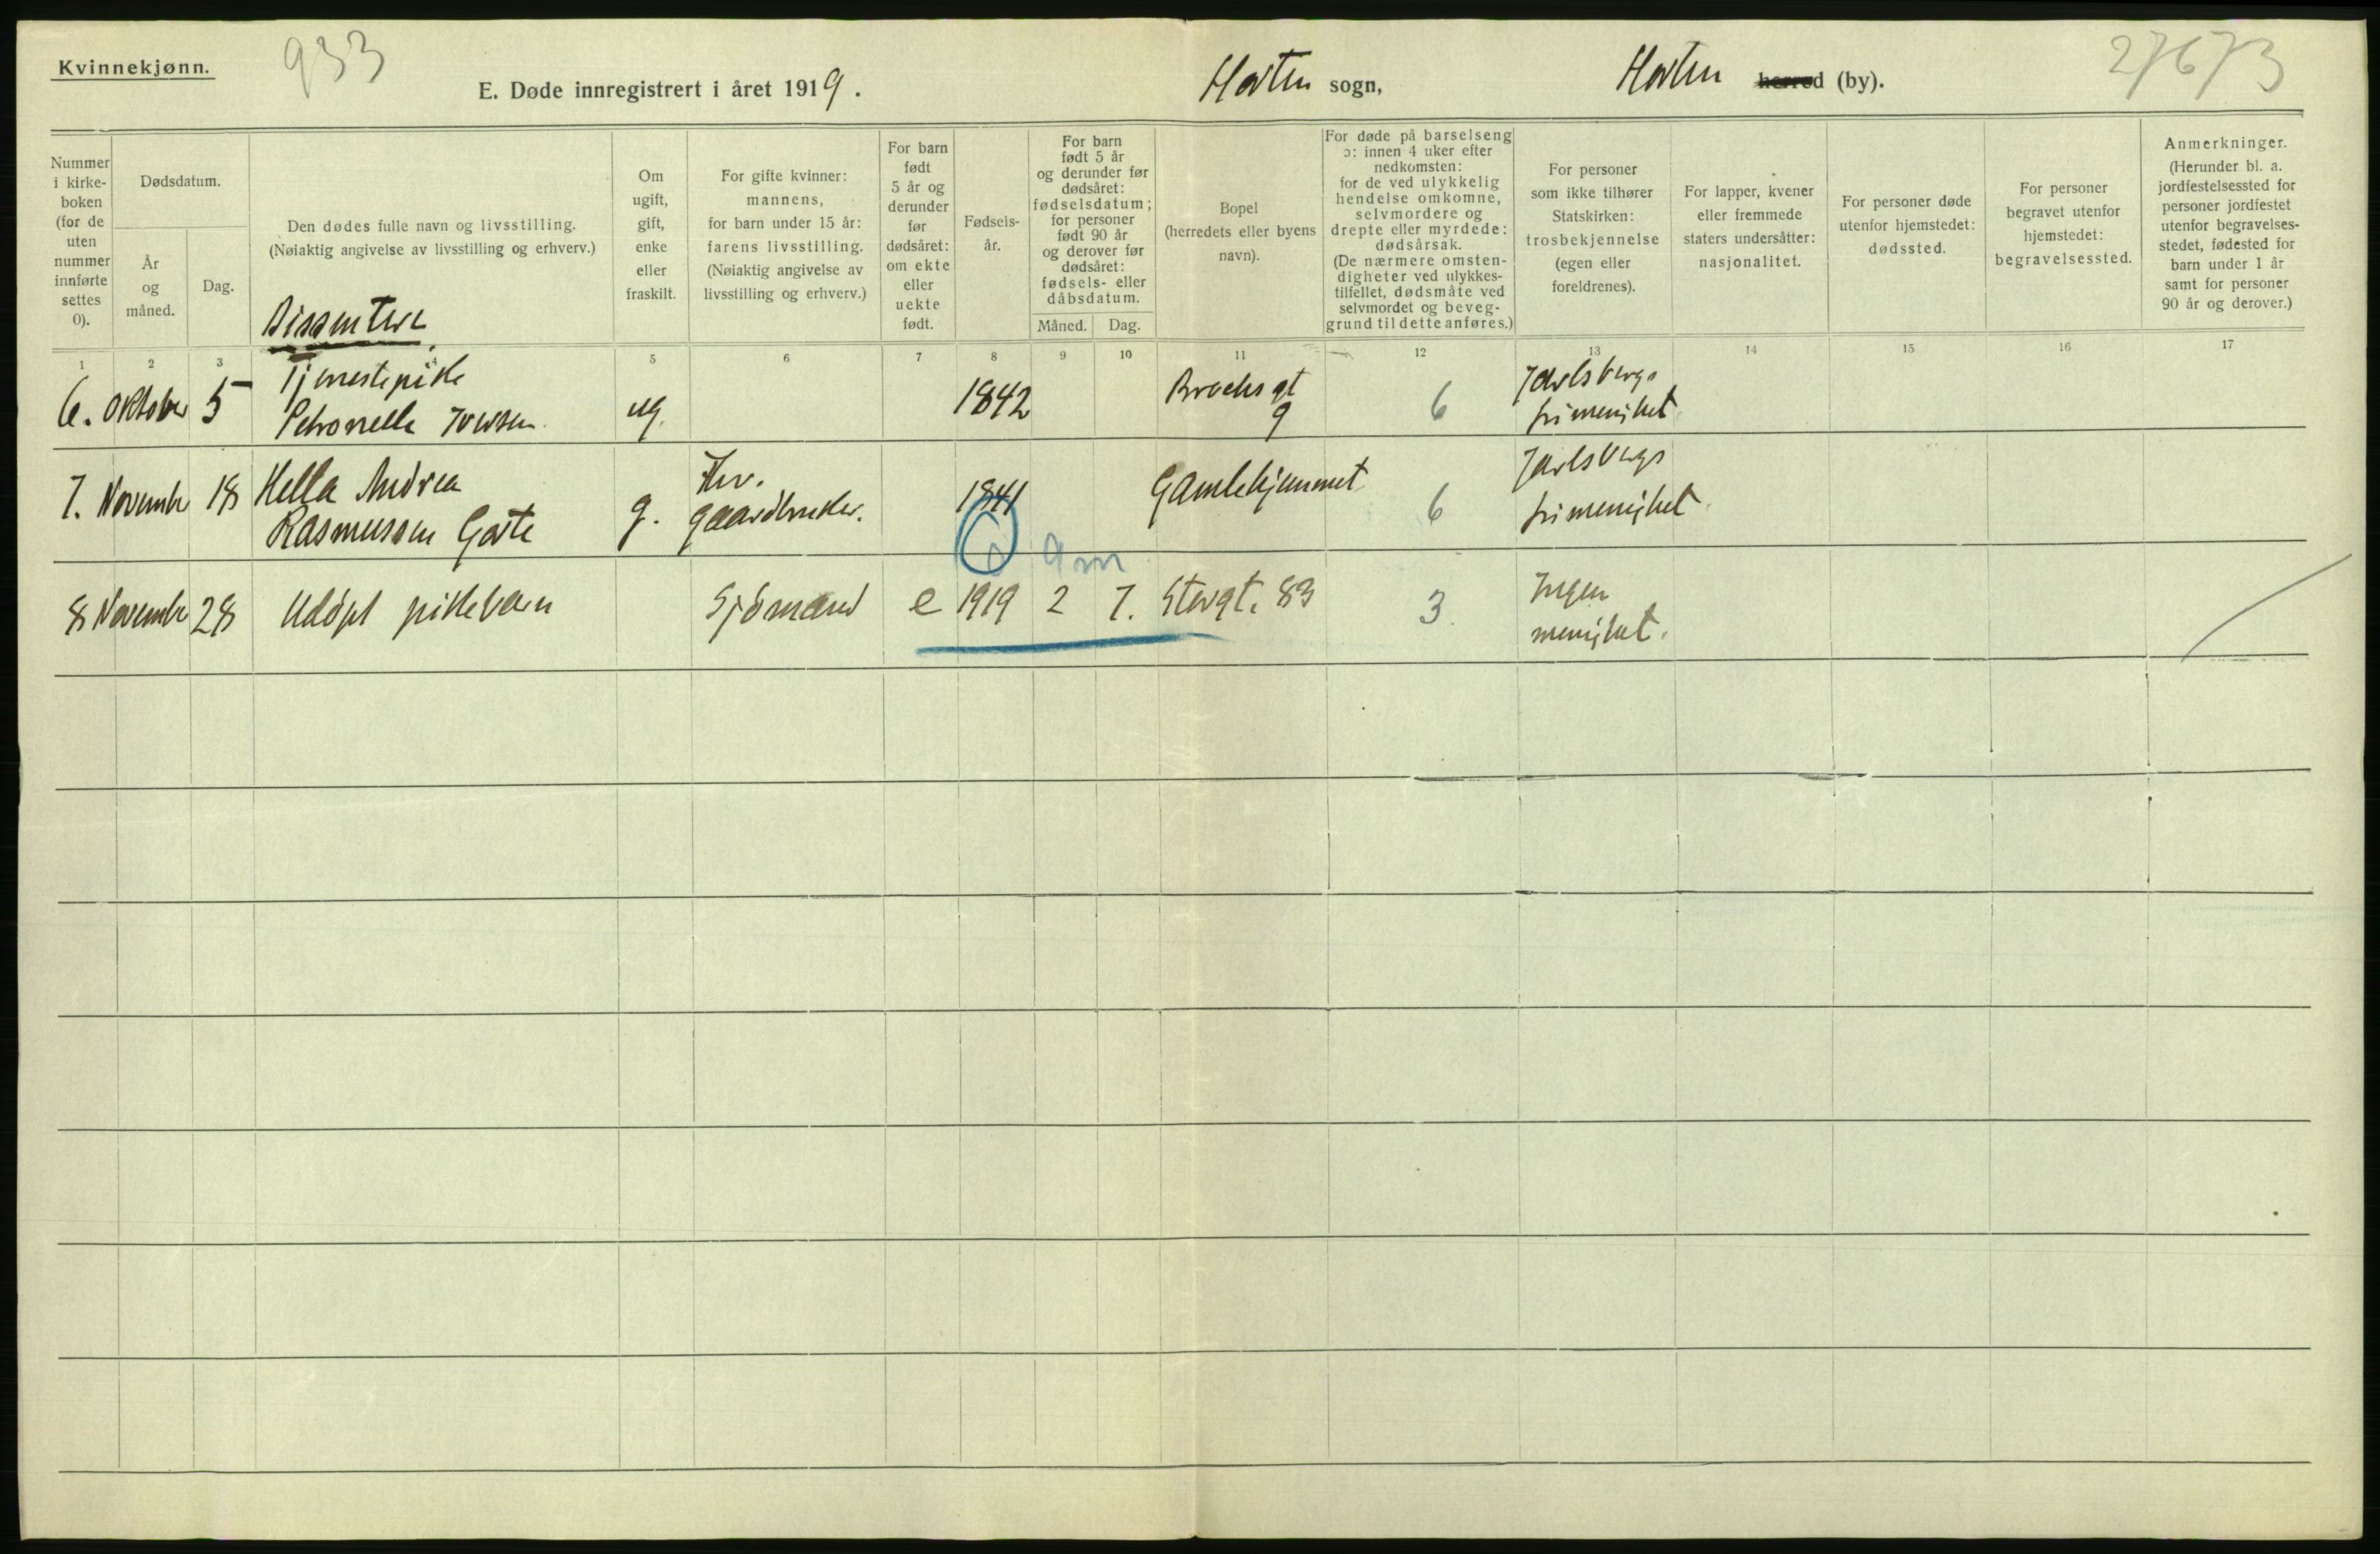 Kvinnekjønn.
933
E. Døde innregistrert i året 1919.
Horten sogn,
Horten herred (by).
27673
Nummer i kirkeboken (for de uten nummer innførte settes 0).
Dødsdatum.
År og måned.
Dag.
Den dødes fulle navn og livsstilling.
(Nøiaktig angivelse av livsstilling og erhverv.)
Om ugift, gift, enke eller fraskilt.
For gifte kvinner: mannens, for barn under 15 år: farens livsstilling. (Nøiaktig angivelse av livsstilling og erhverv.)
For barn født 5 år og derunder før dødsåret: om ekte eller uekte født.
Fødselsår.
For barn født 5 år og derunder før dødsåret: fødselsdatum; for personer født 90 år og derover før dødsåret: fødsels- eller dåbsdatum.
Måned. Dag.
Bopel (herredets eller byens navn).
For døde på barselseng ɔ: innen 4 uker efter nedkomsten: for de ved ulykkelig hendelse omkomne, selvmordere og drepte eller myrdede: dødsårsak. (De nærmere omstendigheter ved ulykkestilfellet, dødsmåte ved selvmordet og beveggrund til dette anføres.)
For personer som ikke tilhører Statskirken: trosbekjennelse (egen eller foreldrenes).
For lapper, kvener eller fremmede staters undersåtter: nasjonalitet.
For personer døde utenfor hjemstedet: dødssted.
For personer begravet utenfor hjemstedet: begravelsessted.
Anmerkninger. (Herunder bl. a. jordfestelsessted for personer jordfestet utenfor begravelsesstedet, fødested for barn under 1 år samt for personer 90 år og derover.)
Dissentere
1 2 3 4 5 6 7 8 9 10 11 12 13 14 15 16 17
Tjenestepike Jarlsbergs
6. Oktober 5 Petronelle Iversen ug. 1842 9 6 frimenighet
Hella Andrea Jarlsbergs
7. November 18 Rasmussen Garte g. gaardbruker. 1841 Gamlehjemmet 6 frimenighet.
8 November 28 Udöpt pikebarn Sjömand e 1919 2 7. Storgt. 83 3. Ingen
menighet.